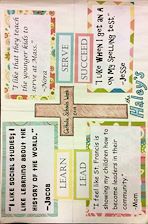 "I like that they teach
the younger kids to
serve at Mass."
-Nora
SERVE
SUCCEED
"I like when I got an A
in my spelling test."
-Jesse
The
Haley's
Catholic Schools
"I LIKE SOCIAL STUDIES! I
LIKE LEARNING ABOUT THE
HISTORY OF THE WORLD."
-Jacob
LEARN
LEAD
"I feel like St Francis is
showing my children how to
become leaders in their
community."
-Mom